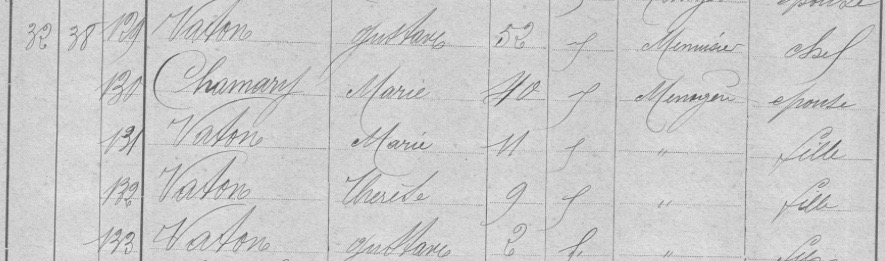 épouse
32 38 129 Vaton Gustave 52 f Menuisier chef
130 Chamary Marie 40 f Menagère epouse
131 Vaton Marie 11 f " fille
132 Vaton Therèse 9 f " fille
133 Vaton Gustave 2 f. " fils